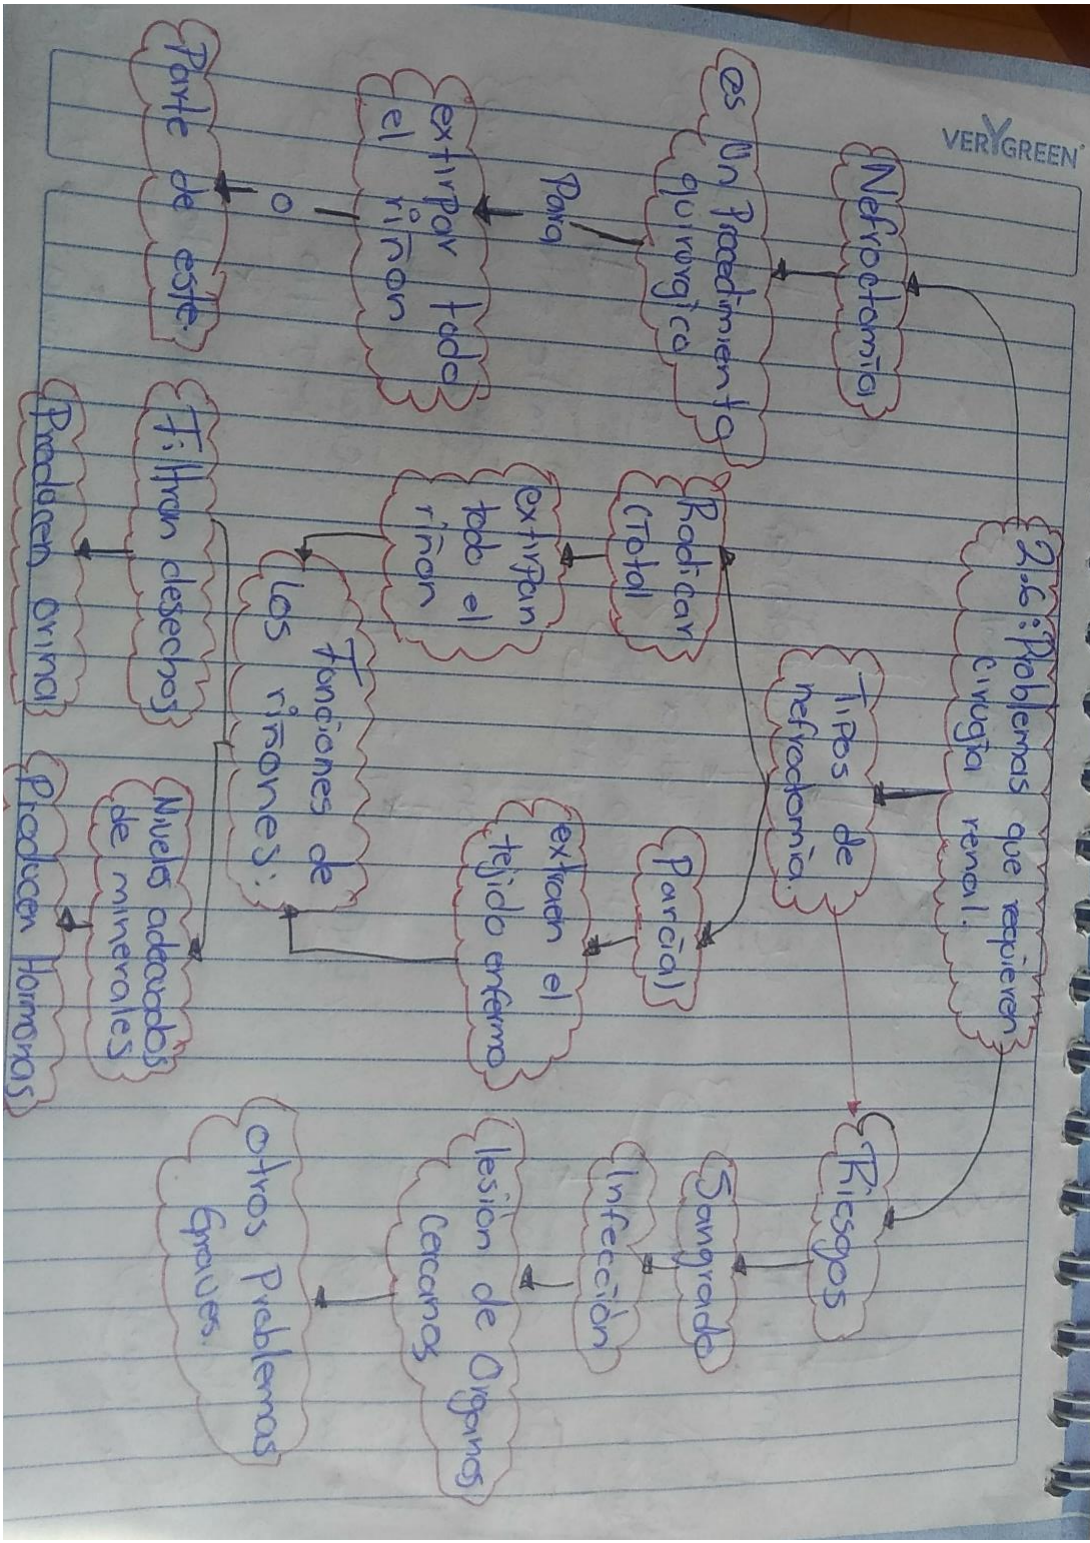 VERYGREEN
2.6: Ploblemas que requieren
cirugía renal.
Nefroctomía
es Un Procedimiento
quirúrgico
Para
extirpar todo
el riñon
o
Parte de este.
Tipos de
nefrodomía.
Radical
(Total
extirpan
todo el
riñon
Parcial)
extraen el
tejido enfermo
Funciones de
los riñones:
Filtran desechos
Producen orina
Niveles adecuados
de minerales
Producen Hormonas
Riesgos
Sangrado
infección
lesión de Organos
Cercanos
otros Problemas
Graves.